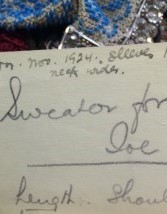 Nov. 1924. sleeves
neck order.
Sweater for
Joe
Length. Shou